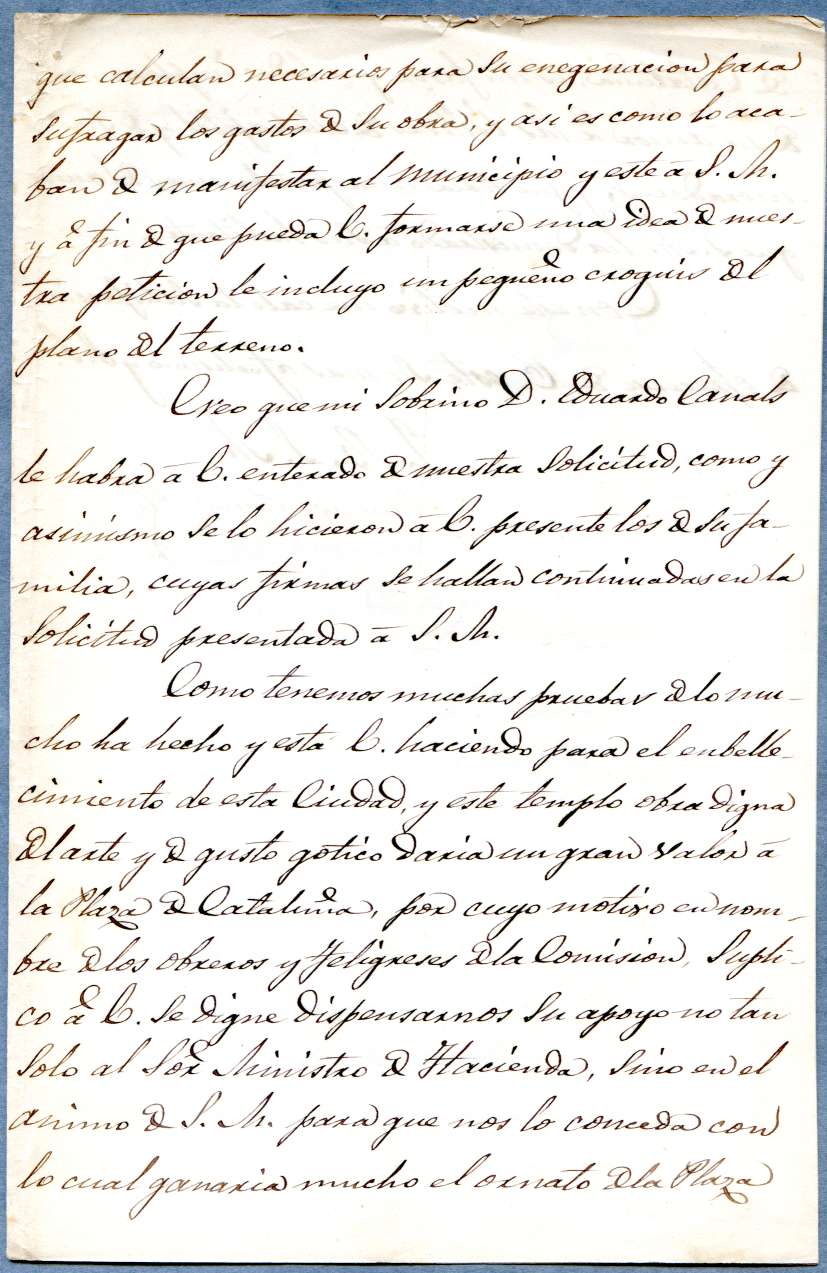 que calculan necesarios para su enegenacion para
sufragar los gastos de su obra, y asi es como lo aca-
ban de manifestar al Municipio y este á S. M.
y á fin de que pueda V. formarse una idea de nues-
tra peticion le incluyo un pequeño croquis del
plano del terreno.
Creo que mi Sobrino D. Eduardo Canals
le habra á V. enterado de nuestra Solicitud, como y
asimismo se lo hicieron á V. presente los de su fa-
milia, cuyas firmas se hallan continuadas en la
Solicitud presentada á S. M.
Como tenemos muchas pruebas de lo mu-
cho ha hecho y esta V. haciendo para el enbelle-
cimiento de esta Ciudad, y este templo obra digna
del arte y de gusto gotico daria un gran valor á
la Plaza de Cataluña, por cuyo motivo en nom-
bre de los obreros y feligreses de la Comision, supli-
co á V. se digne dispensarnos su apoyo no tan
solo al Sor Ministro de Hacienda, sino en el
animo de S. M. para que nos lo conceda con
lo cual ganaria mucho el ornato de la Plaza